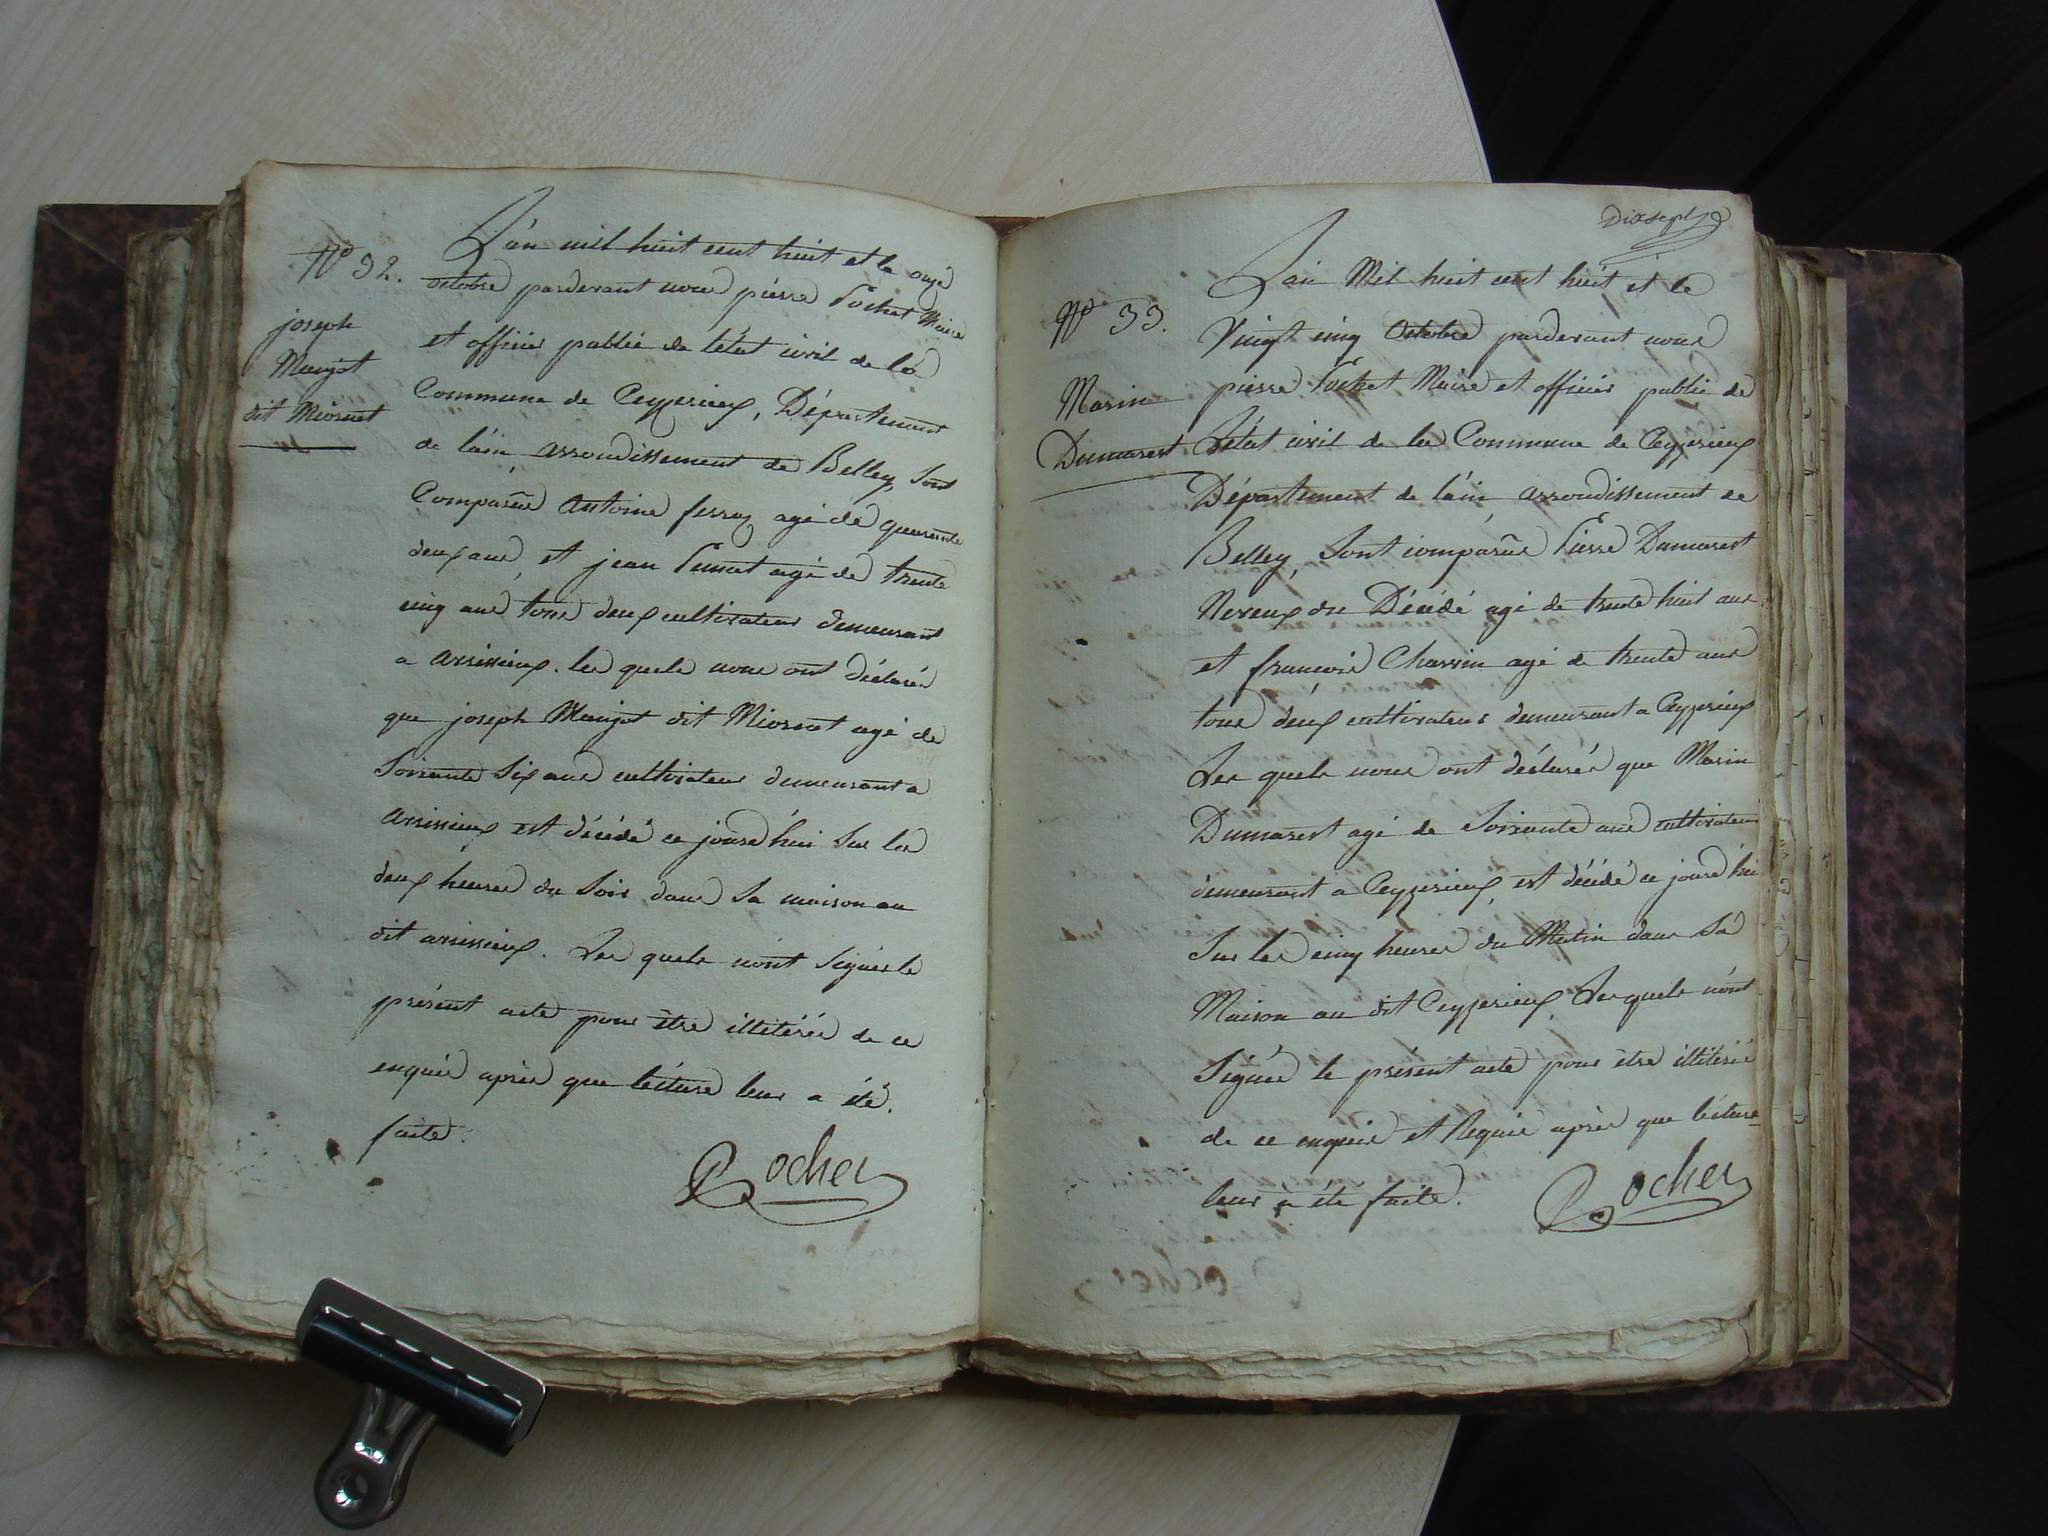 N° 32.
joseph
Maujot
dit Miornet
L'an mil huit cent huit et le onze
octobre pardevant nous pierre Rochet Maire
et officier public de l'état civil de la
Commune de Ceyzerieux, Département
de l'ain, arrondissement de Belley, sont
Comparûs Antoine ferroz agé de quarente
deux ans, et jean agé de trente
cinq ans tous deux cultivateurs demeurant
a avrissieux. les quels nous ont déclarés
que joseph Maujot dit Miornet agé de
Soixante Six ans cultivateur demeurant a
avrissieux est décédé ce jourd'hui Sur les
deux heures du Soir dans Sa maison au
dit avrissieux. Les quels n'ont signer le
présent acte pour être illitérés de ce
enquis après que lécture leur a été
faite.
Rochet
Dixsept
N° 33.
Marin
Dumarest
L'an Mil huit cent huit et le
Vingt cinq Octobre pardevant nous
pierre Rochet Maire et officier public de
L'état civil de la Commune de Ceyzerieux
Département de l'ain, arrondissement de
Belley, Sont comparûs Pierre Dumarest
Neveux du Décédé agé de trente huit ans
et francois Charvin agé de trente ans
tous deux cultivateurs demeurant a Ceyzerieux
Les quels nous ont déclarés que Marin
Dumarest agé de Soixante ans cultivateur
demeurant a Ceyzerieux, est décédé ce jourd'hui
Sur les cinq heures du Matin dans Sa
Maison au dit Ceyzerieux, Lesquels n'ont
Signés le présent acte pour être illitérés
de ce enquis et Requis après que lécture
leur a été faite.
Rochet